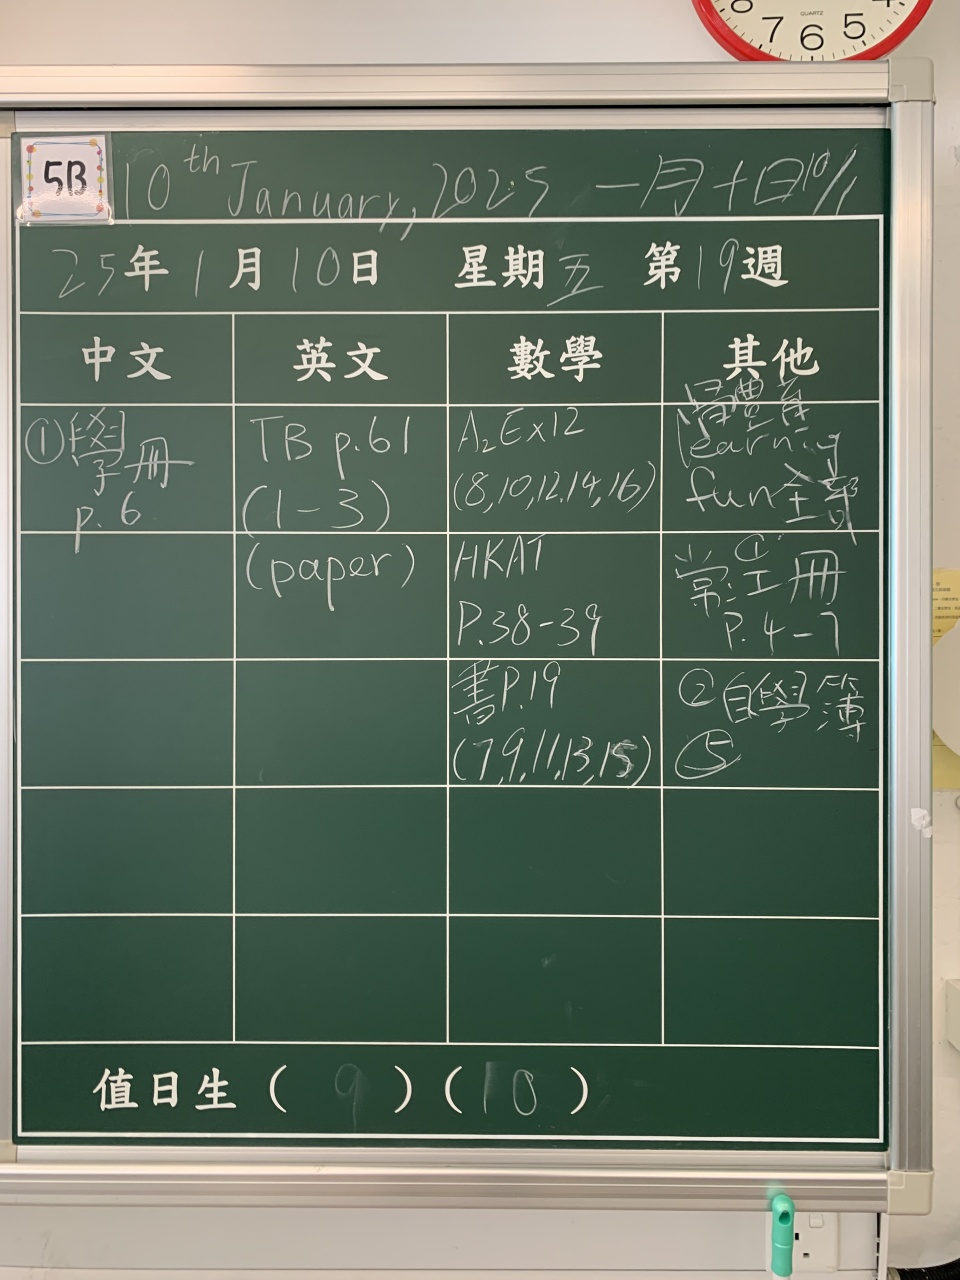 QUARTZ
7 6 5
5B
10th January, 2025 一月十日 10/1
25年1月10日 星期五 第19週
中文 英文 數學 其他
①學冊
p. 6
TB p.61
(1-3)
(paper)
A2 Ex12
(8,10,12,14,16)
HKAT
P.38-39
書P.19
(7,9,11,13,15)
learning
fun全部
常:①工冊
P. 4-7
②自學簿
⑤
值日生 ( 9 ) ( 10 )